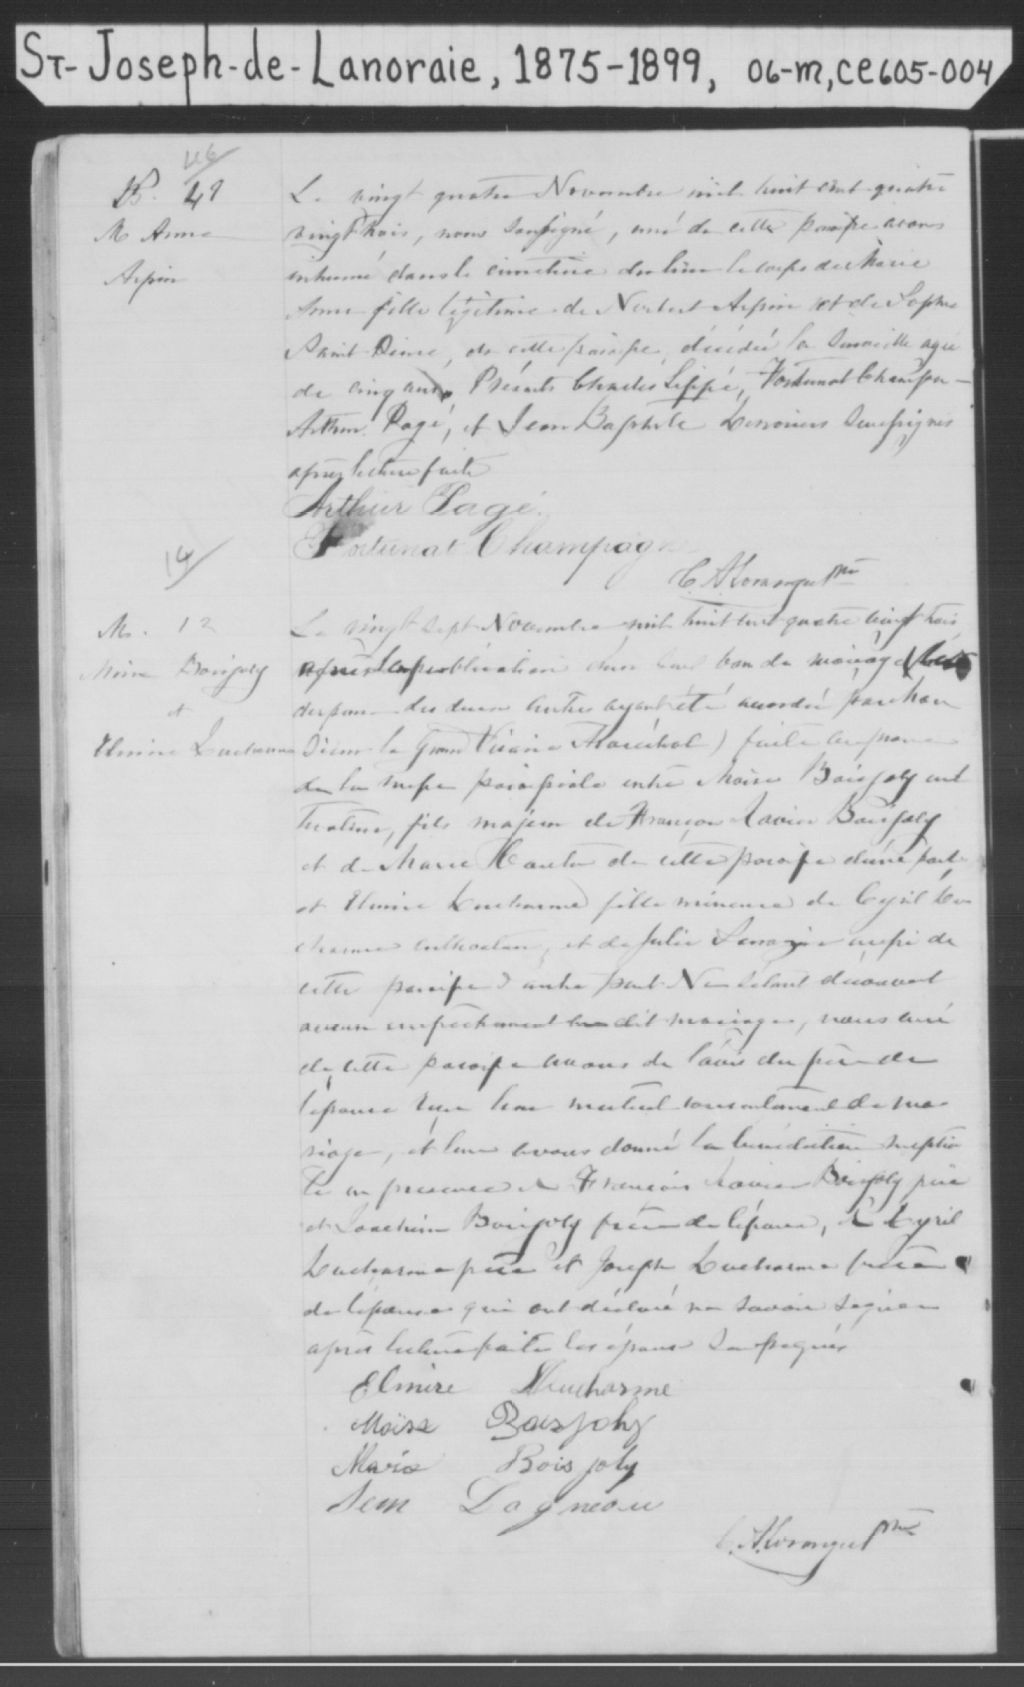 ST-Joseph-de-Lanoraie, 1875-1899, 06-M, CE605-004
46
Le vingt quatre Novembre mil huit cent quatre
M Anne
vingt trois, nous soussigné, curé de cette paroisse avons
Arpin
inhumé dans le cimetière du lieu le corps de Marie
Anne fille légitime de Norbert Arpin et de Sophie
de cette paroisse, décédée la
de cinq ans. Présents Charles Lippé, Fortunat Champa-
Arthur Pagé, et Jean Baptiste Desrosiers soussignés
après lecture faite
Arthur Pagé.
Fortunat Champagne
ptre
14
M. 12
Le vingt sept Novembre mil huit cent quatre vingt trois
Moise Boisjoly
après la publication d'un seul ban de mariage
et
des deux autres ayant été accordée par
Elmire Ducharme
le Grand Vicaire Maréchal) faite au prone
de la messe paroissiale entre Moise Boisjoly cul
tivateur, fils majeur de François Xavier Boisjoly
et de Marie de cette paroisse d'une part
et Elmire Ducharme fille mineure de Cyril Du
charme cultivateur, et de Julie aussi de
cette paroisse d'autre part. Ne s'étant découvert
aucun empêchement au dit mariage, nous curé
de cette paroisse avons de l'avis du père de
l'épouse reçu leur mutuel consentement de ma
riage, et leur avons donné la bénédiction nuptia
le en présence de François Xavier Boisjoly père
et Joachim Boisjoly frère de l'époux, de Cyril
Ducharme père et Joseph Ducharme frère
de l'épouse qui ont déclaré ne savoir signer
après lecture faite les époux soussignés
Elmire Ducharme
Moïse Boisjoly
Marie Boisjoly
Lagneau
ptre